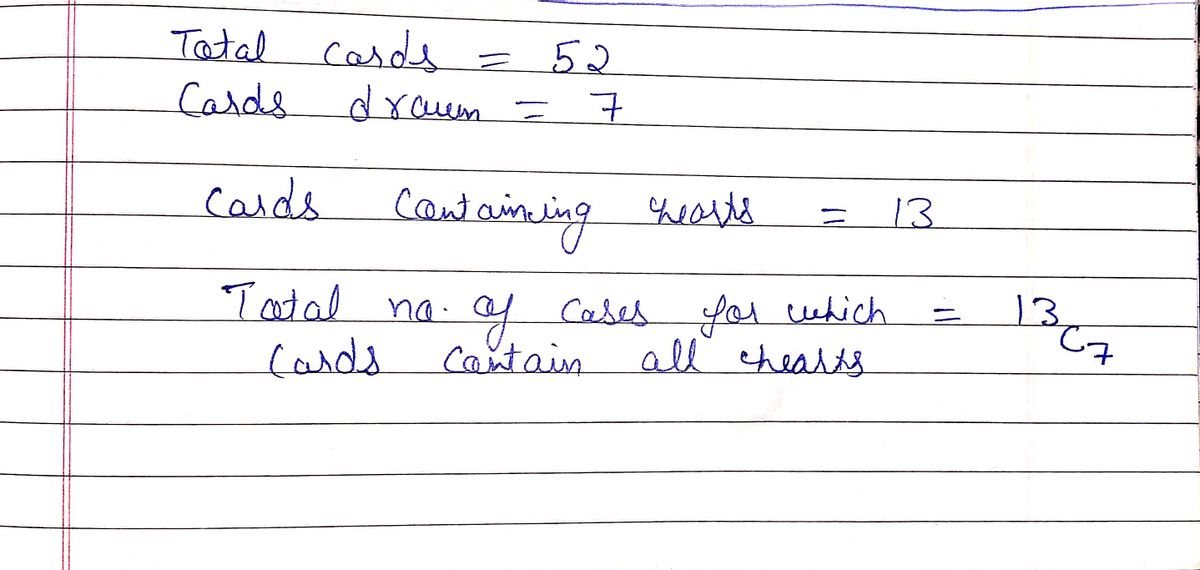 Total cards = 52
Cards drawn = 7
Cards containing hearts = 13
Total no. of cases for which = 13C7
Cards contain all hearts